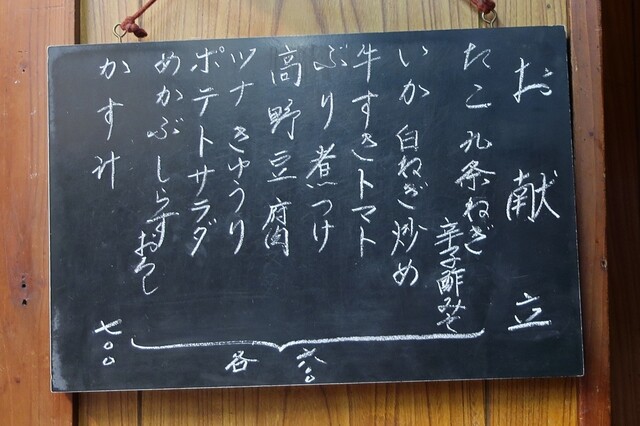 お献立
たこ九条ねぎ
辛子酢みそ
いか白ねぎ炒め
牛すきトマト
ぶり煮つけ
高野豆腐
ツナきゅうり
ポテトサラダ
めかぶしらすおろし
かす汁
各六〇〇
七〇〇